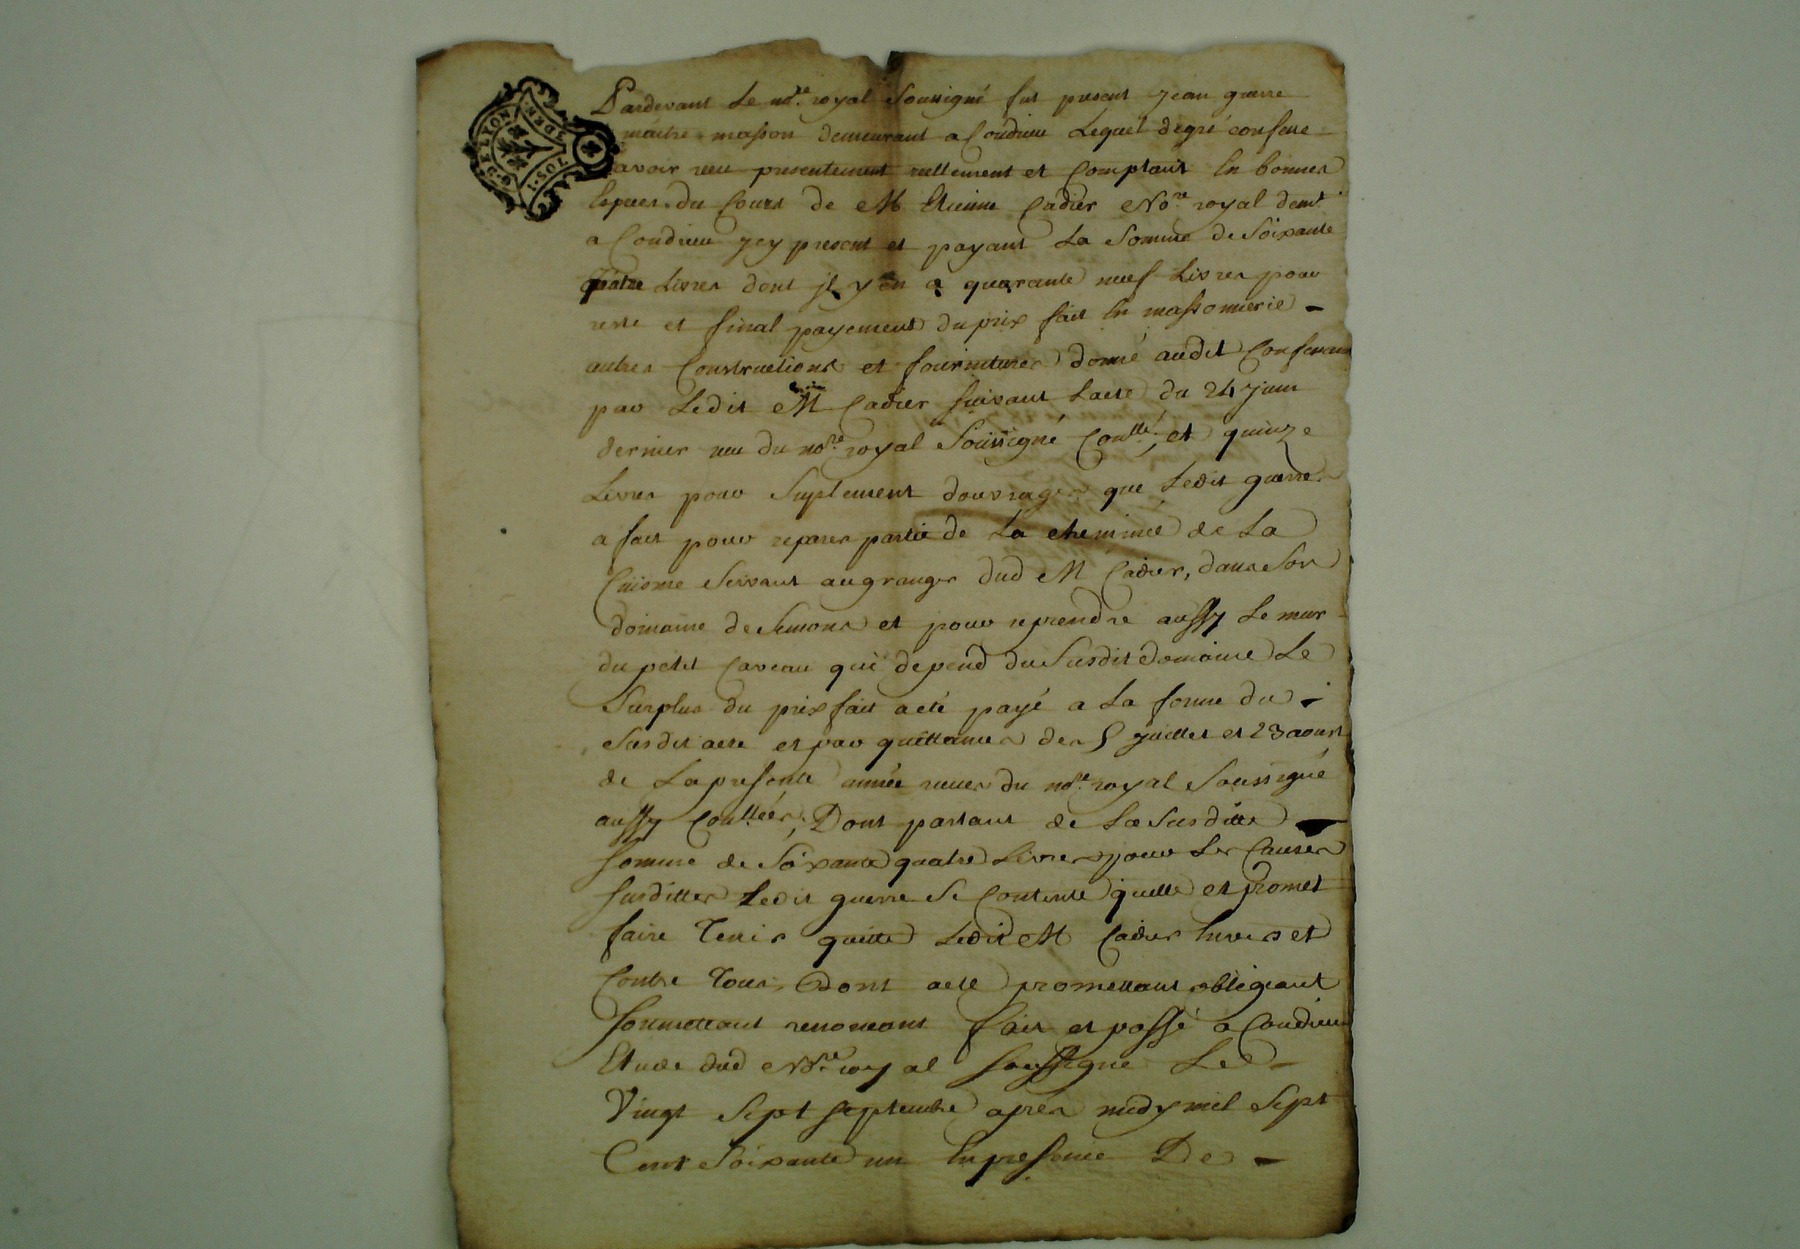 G. DE LYON
2 DEN
TOS. 1
Pardevant Le no.re royal Soussigné fut present jean guerre
maitre masson demeurant a Condrieu Lequel de gré confesse
avoir reçu presentement reellement et Comptant En bonnes
Especes du Cours de Me Etienne Cadier No.re royal demt.
a Condrieu jcy present et payant La Somme de Soixante
quatre Livres dont jl y en a quarante neuf Livres pour
reste et final payement du prix fait En massonnerie
autres Constructions et fournitures donné audit Confessant
par Ledit Me Cadier suivant Lacte du 24 juin
dernier reçu du no.re royal Soussigné Conllé, et quinze
Livres pour Suplement douvrages que Ledit guerre
a fait pour reparer partie de La cheminée de La
Cuisine Servant au granger dud Me Cadier, dans Son
domaine de Semons et pour reprendre aussy Le mur
du petit Caveau qui depend du Susdit domaine Le
Surplus du prix fait a eté payé a La forme du
Susdit acte et par quittances des 5 juillet et 23 aoust
de La presente année reçues du no.re royal Soussigné
aussy Conllées, Dont partant de La Susditte
Somme de Soixante quatre Livres pour Les Causes
susdittes Ledit guerre Se Contente quitte et promet
faire Tenir quitte Ledit Me Cadier Envers et
Contre Tous, Dont acte promettant obligeant
soumettant renonçant fait et passé a Condrieu
Etude dud No.re royal soussigné Le
Vingt Sept septembre après midy mil Sept
Cent Soixante un En presence De